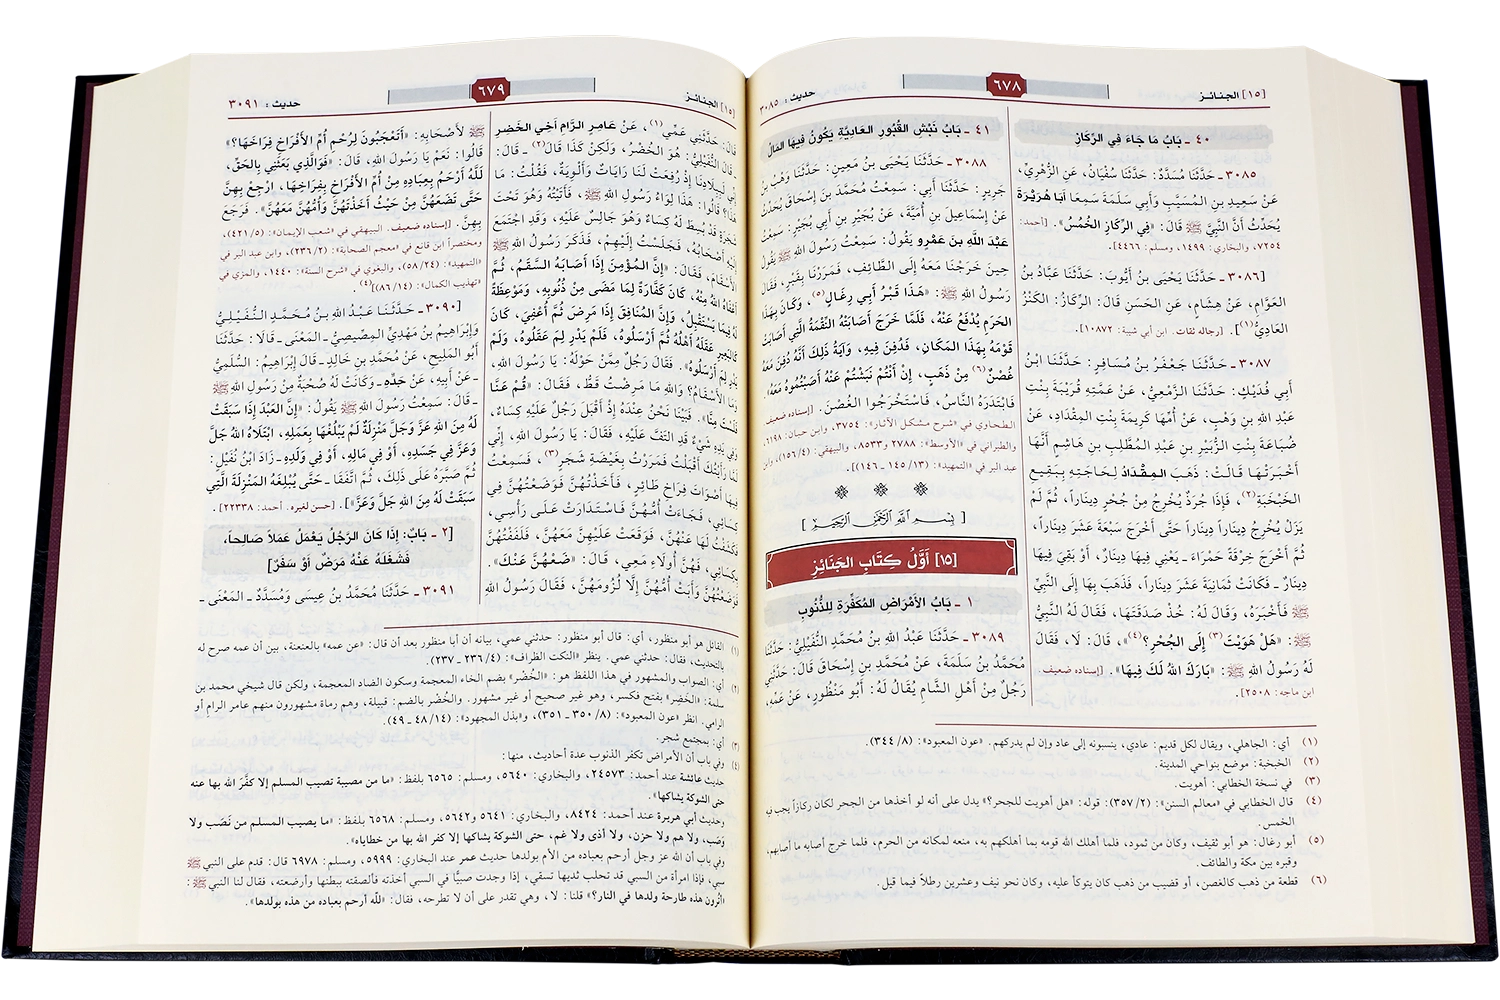 [١٥] الجنائـز
٦٧٨
حديث : ٣٠٨٥
٤٠ ـ بَابُ مَا جَاءَ فِي الرِّكَازِ
٣٠٨٥ ـ حَدَّثَنَا مُسَدَّدٌ: حَدَّثَنَا سُفْيَانُ، عَنِ الزُّهْرِيِّ،
عَنْ سَعِيدِ بنِ المُسَيَّبِ وَأَبِي سَلَمَةَ سَمِعَا أَبَا هُرَيْرَةَ
يُحَدِّثُ أَنَّ النَّبِيَّ ﷺ قَالَ: «فِي الرِّكَازِ الخُمُسُ». [أحمد:
٧٢٥٤، والبخاري: ١٤٩٩، ومسلم: ٤٤٦٦].
[٣٠٨٦ ـ حَدَّثَنَا يَحْيَى بنُ أَيُّوبَ: حَدَّثَنَا عَبَّادُ بنُ
العَوَّامِ، عَنْ هِشَامٍ، عَنِ الحَسَنِ قَالَ: الرِّكَازُ: الكَنْزُ
العَادِيُّ(١)]. [رجاله ثقات. ابن أبي شيبة: ١٠٨٧٢].
٣٠٨٧ ـ حَدَّثَنَا جَعْفَرُ بنُ مُسَافِرٍ: حَدَّثَنَا ابْنُ
أَبِي فُدَيْكٍ: حَدَّثَنَا الزَّمْعِيُّ، عَنْ عَمَّتِهِ قُرَيْبَةَ بِنْتِ
عَبْدِ اللهِ بنِ وَهْبٍ، عَنْ أُمِّهَا كَرِيمَةَ بِنْتِ المِقْدَادِ، عَنْ
ضُبَاعَةَ بِنْتِ الزُّبَيْرِ بنِ عَبْدِ المُطَّلِبِ بنِ هَاشِمٍ أَنَّهَا
أَخْبَرَتْهَا قَالَتْ: ذَهَبَ المِقْدَادُ لِحَاجَتِهِ بِبَقِيعِ
الخَبْخَبَةِ(٢)، فَإِذَا جُرَذٌ يُخْرِجُ مِنْ جُحْرٍ دِينَاراً، ثُمَّ لَمْ
يَزَلْ يُخْرِجُ دِينَاراً دِينَاراً حَتَّى أَخْرَجَ سَبْعَةَ عَشَرَ دِينَاراً،
ثُمَّ أَخْرَجَ خِرْقَةً حَمْرَاءَ ـ يَعْنِي فِيهَا دِينَارٌ، أَوْ بَقِيَ فِيهَا
دِينَارٌ ـ فَكَانَتْ ثَمَانِيَةَ عَشَرَ دِينَاراً، فَذَهَبَ بِهَا إِلَى النَّبِيِّ
ﷺ فَأَخْبَرَهُ، وَقَالَ لَهُ: خُذْ صَدَقَتَهَا، فَقَالَ لَهُ النَّبِيُّ
ﷺ: «هَلْ هَوَيْتَ(٣) إِلَى الجُحْرِ؟»(٤)، قَالَ: لَا، فَقَالَ
لَهُ رَسُولُ اللهِ ﷺ: «بَارَكَ اللهُ لَكَ فِيهَا». [إسناده ضعيف.
ابن ماجه: ٢٥٠٨].
٤١ ـ بَابُ نَبْشِ القُبُورِ العَادِيَّةِ يَكُونُ فِيهَا المَالُ
٣٠٨٨ ـ حَدَّثَنَا يَحْيَى بنُ مَعِينٍ: حَدَّثَنَا وَهْبُ بنُ
جَرِيرٍ: حَدَّثَنَا أَبِي: سَمِعْتُ مُحَمَّدَ بنَ إِسْحَاقَ يُحَدِّثُ
عَنْ إِسْمَاعِيلَ بنِ أُمَيَّةَ، عَنْ بُجَيْرِ بنِ أَبِي بُجَيْرٍ: سَمِعْتُ
عَبْدَ اللهِ بنَ عَمْرٍو يَقُولُ: سَمِعْتُ رَسُولَ اللهِ ﷺ يَقُولُ
حِينَ خَرَجْنَا مَعَهُ إِلَى الطَّائِفِ، فَمَرَرْنَا بِقَبْرٍ، فَقَالَ
رَسُولُ اللهِ ﷺ: «هَذَا قَبْرُ أَبِي رِغَالٍ(٥)، وَكَانَ بِهَذَا
الحَرَمِ يُدْفَعُ عَنْهُ، فَلَمَّا خَرَجَ أَصَابَتْهُ النِّقْمَةُ الَّتِي أَصَابَتْ
قَوْمَهُ بِهَذَا المَكَانِ، فَدُفِنَ فِيهِ، وَآيَةُ ذَلِكَ أَنَّهُ دُفِنَ مَعَهُ
غُصْنٌ(٦) مِنْ ذَهَبٍ، إِنْ أَنْتُمْ نَبَشْتُمْ عَنْهُ أَصَبْتُمُوهُ مَعَهُ».
فَابْتَدَرَهُ النَّاسُ، فَاسْتَخْرَجُوا الغُصْنَ. [إسناده ضعيف.
الطحاوي في «شرح مشكل الآثار»: ٣٧٥٤، وابن حبان: ٦١٩٨،
والطبراني في «الأوسط»: ٢٧٨٨ و٨٥٣٣، والبيهقي: (١٥٦/٤)، وابن
عبد البر في «التمهيد»: (١٣/ ١٤٥ ـ ١٤٦)].
[ بِسْمِ اللهِ الرَّحْمَنِ الرَّحِيمِ ]
[١٥] أَوَّلُ كِتَابِ الجَنَائِزِ
١ ـ بَابُ الأَمْرَاضِ المُكَفِّرَةِ لِلذُّنُوبِ
٣٠٨٩ ـ حَدَّثَنَا عَبْدُ اللهِ بنُ مُحَمَّدٍ النُّفَيْلِيُّ: حَدَّثَنَا
مُحَمَّدُ بنُ سَلَمَةَ، عَنْ مُحَمَّدِ بنِ إِسْحَاقَ قَالَ: حَدَّثَنِي
رَجُلٌ مِنْ أَهْلِ الشَّامِ يُقَالُ لَهُ: أَبُو مَنْظُورٍ، عَنْ عَمِّهِ،
(١) أي: الجاهلي، ويقال لكل قديم: عادي، ينسبونه إلى عاد وإن لم يدركهم. «عون المعبود»: (٨/ ٣٤٤).
(٢) الخبخبة: موضع بنواحي المدينة.
(٣) في نسخة الخطابي: أهويت.
(٤) قال الخطابي في «معالم السنن»: (٢/ ٣٥٧): قوله: «هل أهويت للجحر؟» يدل على أنه لو أخذها من الجحر لكان ركازاً يجب فيه
الخمس.
(٥) أبو رغال: هو أبو ثقيف، وكان من ثمود، فلما أهلك الله قومه بما أهلكهم به، منعه لمكانه من الحرم، فلما خرج أصابه ما أصابهم،
وقبره بين مكة والطائف.
(٦) قطعة من ذهب كالغصن، أو قضيب من ذهب كان يتوكأ عليه، وكان نحو نيف وعشرين رطلاً فيما قيل.
[١٥] الجنائـز
٦٧٩
حديث : ٣٠٩١
قَالَ: حَدَّثَنِي عَمِّي(١)، عَنْ عَامِرٍ الرَّامِ أَخِي الخَضِرِ
ـ قَالَ النُّفَيْلِيُّ: هُوَ الخُضْرُ، وَلَكِنْ كَذَا قَالَ(٢) ـ قَالَ:
إِنِّي لَبِبِلَادِنَا إِذْ رُفِعَتْ لَنَا رَايَاتٌ وَأَلْوِيَةٌ، فَقُلْتُ: مَا
هَذَا؟ قَالُوا: هَذَا لِوَاءُ رَسُولِ اللهِ ﷺ، فَأَتَيْتُهُ وَهُوَ تَحْتَ
شَجَرَةٍ قَدْ بُسِطَ لَهُ كِسَاءٌ وَهُوَ جَالِسٌ عَلَيْهِ، وَقَدِ اجْتَمَعَ
إِلَيْهِ أَصْحَابُهُ، فَجَلَسْتُ إِلَيْهِمْ، فَذَكَرَ رَسُولُ اللهِ ﷺ
الأَسْقَامَ، فَقَالَ: «إِنَّ المُؤْمِنَ إِذَا أَصَابَهُ السَّقَمُ، ثُمَّ
أَعْفَاهُ اللهُ مِنْهُ، كَانَ كَفَّارَةً لِمَا مَضَى مِنْ ذُنُوبِهِ، وَمَوْعِظَةً
لَهُ فِيمَا يَسْتَقْبِلُ، وَإِنَّ المُنَافِقَ إِذَا مَرِضَ ثُمَّ أُعْفِيَ، كَانَ
كَالبَعِيرِ عَقَلَهُ أَهْلُهُ ثُمَّ أَرْسَلُوهُ، فَلَمْ يَدْرِ لِمَ عَقَلُوهُ، وَلَمْ
يَدْرِ لِمَ أَرْسَلُوهُ». فَقَالَ رَجُلٌ مِمَّنْ حَوْلَهُ: يَا رَسُولَ اللهِ،
وَمَا الأَسْقَامُ؟ وَاللهِ مَا مَرِضْتُ قَطُّ، فَقَالَ: «قُمْ عَنَّا
فَلَسْتَ مِنَّا». فَبَيْنَا نَحْنُ عِنْدَهُ إِذْ أَقْبَلَ رَجُلٌ عَلَيْهِ كِسَاءٌ،
وَفِي يَدِهِ شَيْءٌ قَدِ التَفَّ عَلَيْهِ، فَقَالَ: يَا رَسُولَ اللهِ، إِنِّي
لَمَّا رَأَيْتُكَ أَقْبَلْتُ فَمَرَرْتُ بِغَيْضَةِ شَجَرٍ(٣)، فَسَمِعْتُ
فِيهَا أَصْوَاتَ فِرَاخِ طَائِرٍ، فَأَخَذْتُهُنَّ فَوَضَعْتُهُنَّ فِي
كِسَائِي، فَجَاءَتْ أُمُّهُنَّ فَاسْتَدَارَتْ عَلَى رَأْسِي،
فَكَشَفْتُ لَهَا عَنْهُنَّ، فَوَقَعَتْ عَلَيْهِنَّ مَعَهُنَّ، فَلَفَفْتُهُنَّ
بِكِسَائِي، فَهُنَّ أُولَاءِ مَعِي، قَالَ: «ضَعْهُنَّ عَنْكَ».
فَوَضَعْتُهُنَّ وَأَبَتْ أُمُّهُنَّ إِلَّا لُزُومَهُنَّ، فَقَالَ رَسُولُ اللهِ
ﷺ لأَصْحَابِهِ: «أَتَعْجَبُونَ لِرُحْمِ أُمِّ الأَفْرَاخِ فِرَاخَهَا؟»
قَالُوا: نَعَمْ يَا رَسُولَ اللهِ، قَالَ: «فَوَالَّذِي بَعَثَنِي بِالحَقِّ،
لَلَّهُ أَرْحَمُ بِعِبَادِهِ مِنْ أُمِّ الأَفْرَاخِ بِفِرَاخِهَا، ارْجِعْ بِهِنَّ
حَتَّى تَضَعَهُنَّ مِنْ حَيْثُ أَخَذْتَهُنَّ وَأُمُّهُنَّ مَعَهُنَّ». فَرَجَعَ
بِهِنَّ. [إسناده ضعيف. البيهقي في «شعب الإيمان»: (٤٢١/٥)،
ومختصراً ابن قانع في «معجم الصحابة»: (٢٣٦/٢)، وابن عبد البر في
«التمهيد»: (٥٨/٢٤)، والبغوي في «شرح السنة»: ١٤٤٠، والمزي في
«تهذيب الكمال»: (٨٦/١٤)](٤).
[٣٠٩٠ ـ حَدَّثَنَا عَبْدُ اللهِ بنُ مُحَمَّدٍ النُّفَيْلِيُّ
وَإِبْرَاهِيمُ بنُ مَهْدِيٍّ المِصِّيصِيُّ ـ المَعْنَى ـ قَالَا: حَدَّثَنَا
أَبُو المَلِيحِ، عَنْ مُحَمَّدِ بنِ خَالِدٍ ـ قَالَ إِبْرَاهِيمُ: السُّلَمِيُّ
ـ عَنْ أَبِيهِ، عَنْ جَدِّهِ ـ وَكَانَتْ لَهُ صُحْبَةٌ مِنْ رَسُولِ اللهِ ﷺ
ـ قَالَ: سَمِعْتُ رَسُولَ اللهِ ﷺ يَقُولُ: «إِنَّ العَبْدَ إِذَا سَبَقَتْ
لَهُ مِنَ اللهِ عَزَّ وَجَلَّ مَنْزِلَةٌ لَمْ يَبْلُغْهَا بِعَمَلِهِ، ابْتَلَاهُ اللهُ جَلَّ
وَعَزَّ فِي جَسَدِهِ، أَوْ فِي مَالِهِ، أَوْ فِي وَلَدِهِ ـ زَادَ ابْنُ نُفَيْلٍ:
ثُمَّ صَبَّرَهُ عَلَى ذَلِكَ، ثُمَّ اتَّفَقَا ـ حَتَّى يُبْلِغَهُ المَنْزِلَةَ الَّتِي
سَبَقَتْ لَهُ مِنَ اللهِ جَلَّ وَعَزَّ»]. [حسن لغيره. أحمد: ٢٢٣٣٨].
[٢ ـ بَابٌ: إِذَا كَانَ الرَّجُلُ يَعْمَلُ عَمَلاً صَالِحاً،
فَشَغَلَهُ عَنْهُ مَرَضٌ أَوْ سَفَرٌ]
٣٠٩١ ـ حَدَّثَنَا مُحَمَّدُ بنُ عِيسَى وَمُسَدَّدٌ ـ المَعْنَى ـ
(١) القائل هو أبو منظور، أي: قال أبو منظور: حدثني عمي، بيانه أن أبا منظور بعد أن قال: «عن عمه» بالعنعنة، بين أن عمه صرح له
بالتحديث، فقال: حدثني عمي. ينظر «النكت الظراف»: (٢٣٦/٤ ـ ٢٣٧).
(٢) أي: الصواب والمشهور في هذا اللفظ هو: «الخُضْر» بضم الخاء المعجمة وسكون الضاد المعجمة، ولكن قال شيخي محمد بن
سلمة: «الخَضِر» بفتح فكسر، وهو غير صحيح أو غير مشهور. والخُضْر بالضم: قبيلة، وهم رماة مشهورون منهم عامر الرام أو
الرامي. انظر «عون المعبود»: (٨/ ٣٥٠ ـ ٣٥١)، و«بذل المجهود»: (١٤/ ٤٨ ـ ٤٩).
(٣) أي: بمجتمع شجر.
(٤) وفي باب أن الأمراض تكفر الذنوب عدة أحاديث، منها:
حديث عائشة عند أحمد: ٢٤٥٧٣، والبخاري: ٥٦٤٠، ومسلم: ٦٥٦٥ بلفظ: «ما من مصيبة تصيب المسلم إلا كفَّر الله بها عنه
حتى الشوكة يشاكها».
وحديث أبي هريرة عند أحمد: ٨٤٢٤، والبخاري: ٥٦٤١ و٥٦٤٢، ومسلم: ٦٥٦٨ بلفظ: «ما يصيب المسلم من نَصَب ولا
وَصَب، ولا هم ولا حزن، ولا أذى ولا غم، حتى الشوكة يشاكها إلا كفر الله بها من خطاياه».
وفي باب أن الله عز وجل أرحم بعباده من الأم بولدها حديث عمر عند البخاري: ٥٩٩٩، ومسلم: ٦٩٧٨ قال: قدم على النبي ﷺ
سبي، فإذا امرأة من السبي قد تحلب ثديها تسقي، إذا وجدت صبيًّا في السبي أخذته فألصقته ببطنها وأرضعته، فقال لنا النبي ﷺ:
«أترون هذه طارحة ولدها في النار؟» قلنا: لا، وهي تقدر على أن لا تطرحه، فقال: «لله أرحم بعباده من هذه بولدها».